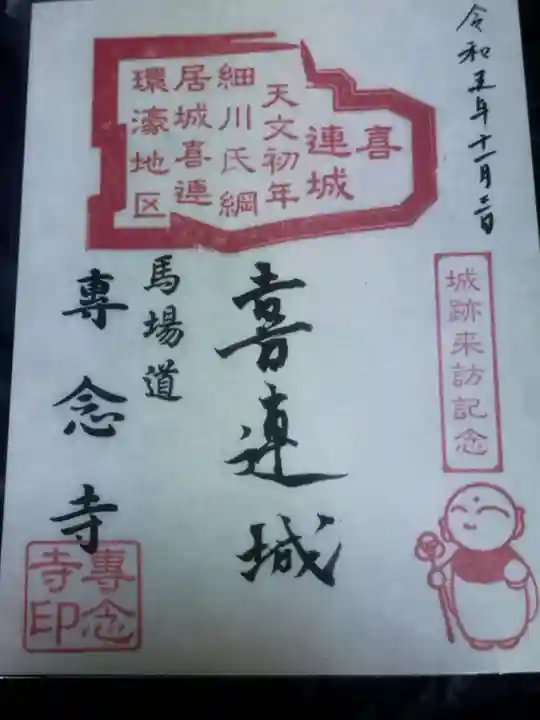 令和五年十一月三日
城跡来訪記念
喜
連城
天文初年
細川氏綱
居城喜連
環濠地区
喜連城
馬場道
専念寺
専念
寺印